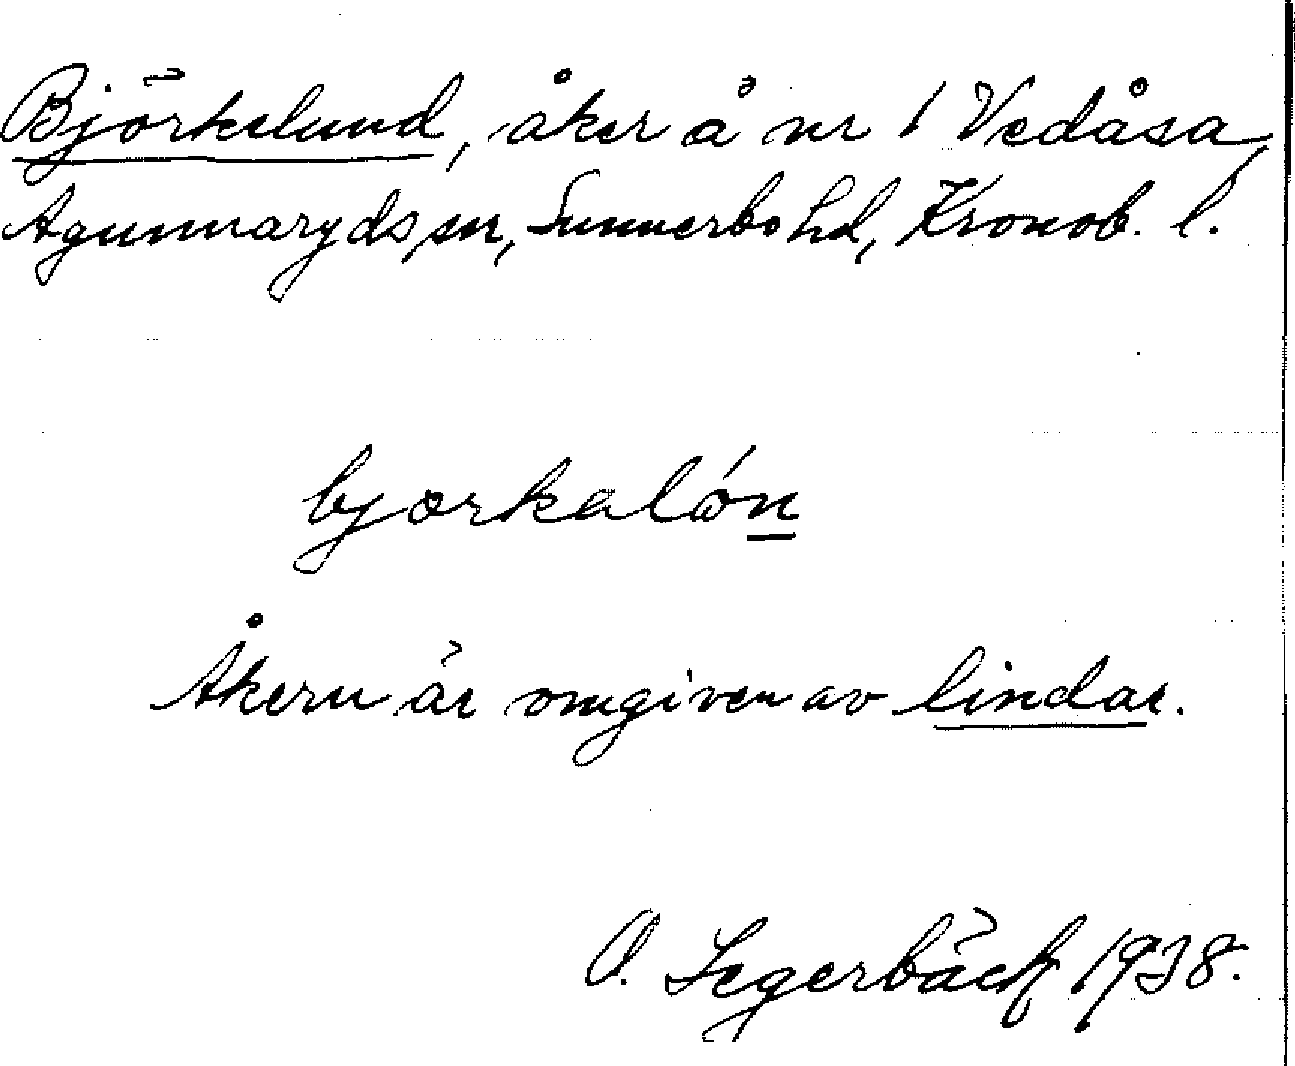 Björkelund, åker å nr 1 Vedåsa,
Agunnaryds sn, Sunnerbo hd, Kronob. l.
bjorkalón
Åkern är omgiven av lindar.
O. Segerbäck 1938.